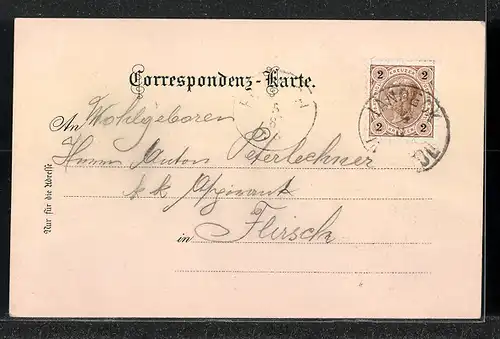 Correspondenz-Karte.
2 KREUZER 2
2 2
An Wohlgeboren
Herrn Anton Peterlechner
k k
in Flirsch
Nur für die Adresse